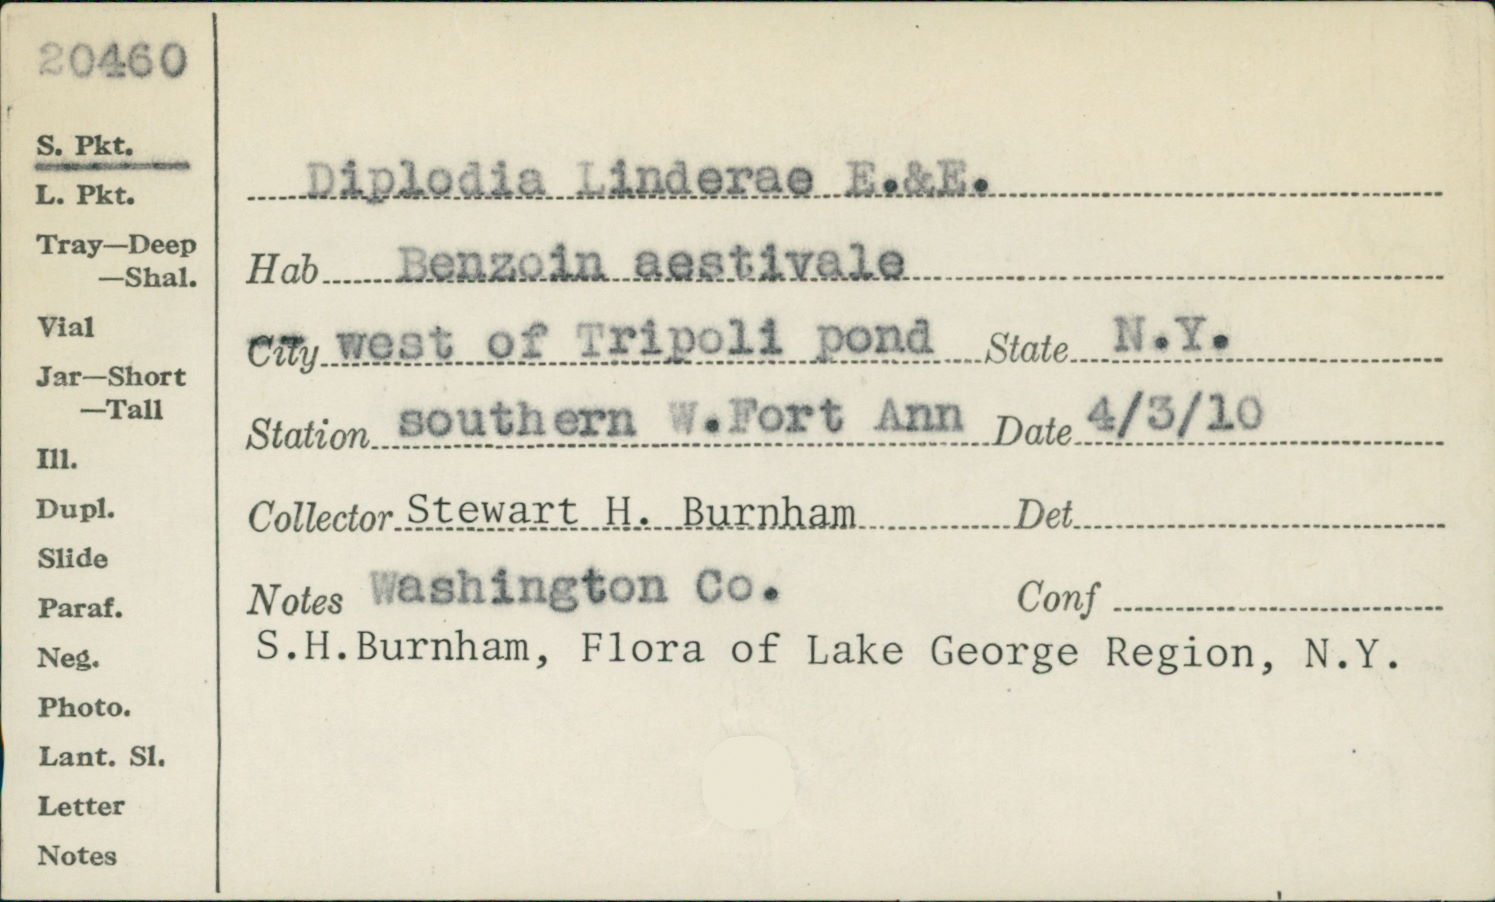 20460
S. Pkt.
L. Pkt.
Tray—Deep
—Shal.
Vial
Jar—Short
—Tall
Ill.
Dupl.
Slide
Paraf.
Neg.
Photo.
Lant. Sl.
Letter
Notes
Diplodia Linderae E.&E.
Hab Benzoin aestivale
City west of Tripoli pond State N.Y.
Station southern W.Fort Ann Date 4/3/10
Collector Stewart H. Burnham Det
Notes Washington Co. Conf
S.H.Burnham, Flora of Lake George Region, N.Y.